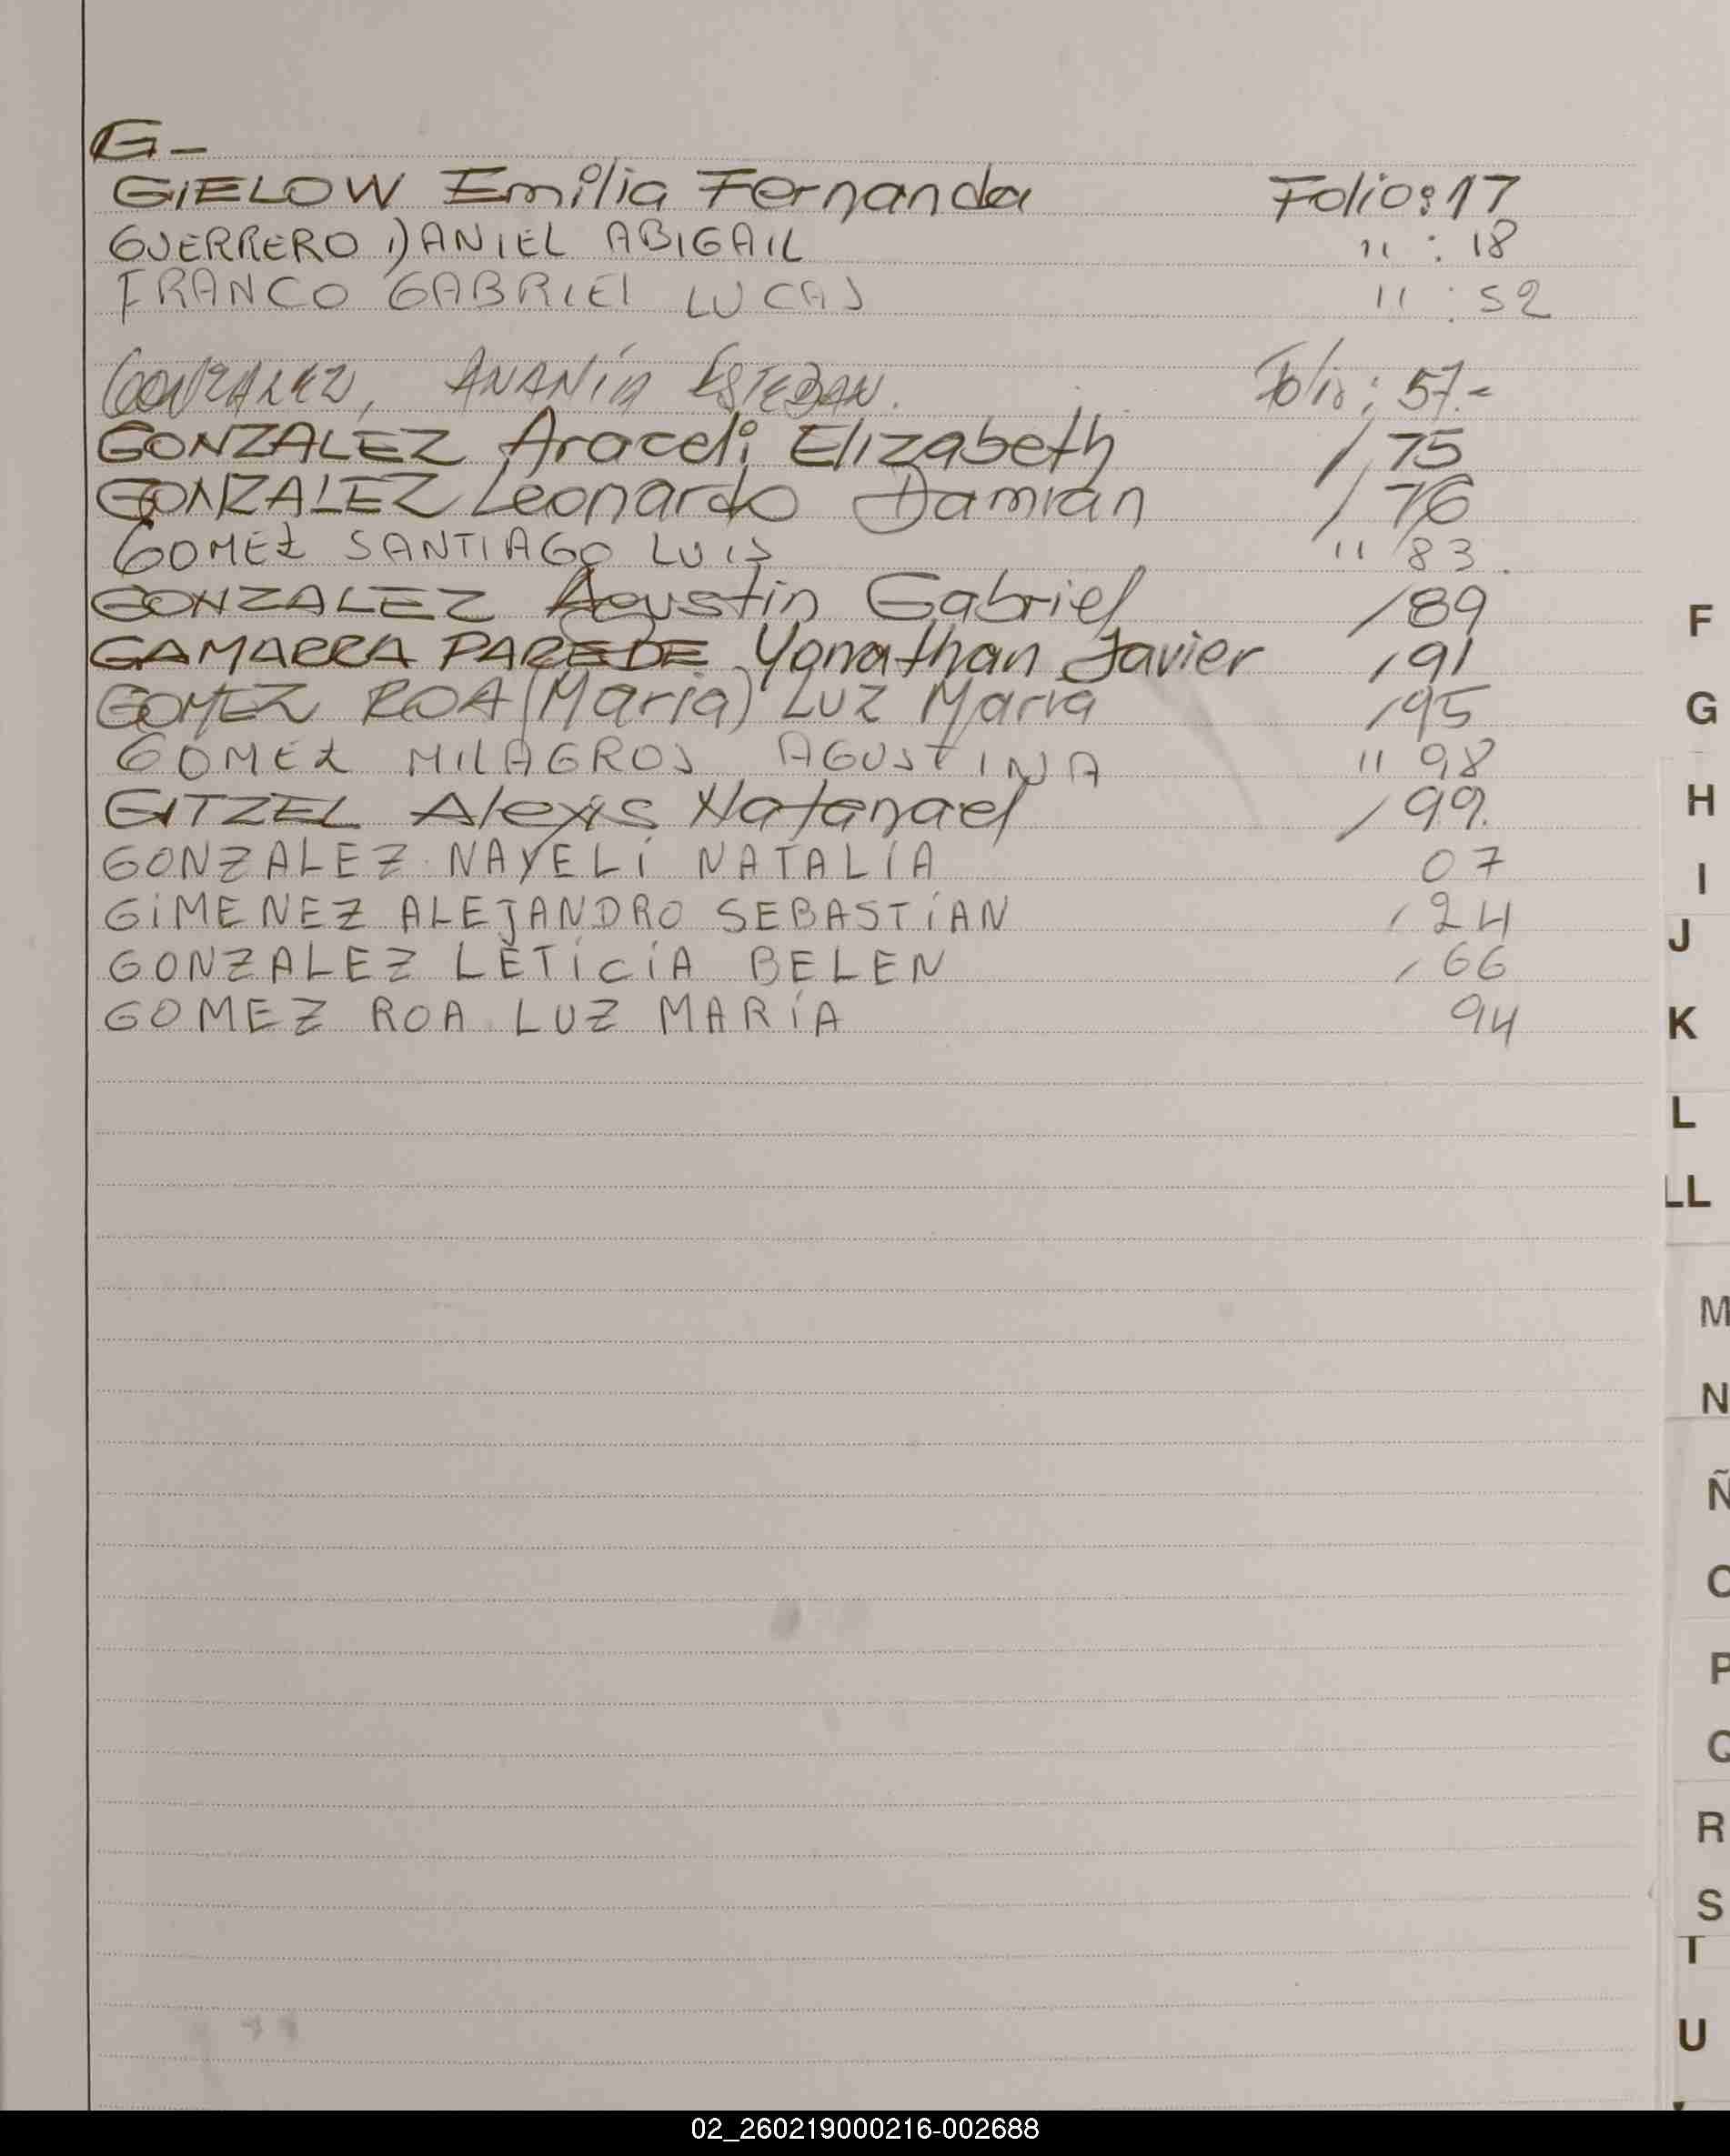 G-
GIELOW Emilia Fernanda Folio: 17
GUERRERO DANIEL ABIGAIL " : 18
FRANCO GABRIEL LUCAS " : 52
GONZALEZ, ANANÍA ESTEBAN. Folio: 57.-
GONZALEZ Araceli Elizabeth / 75
GONZALEZ Leonardo Damian / 76
GOMEZ SANTIAGO LUIS " 83.
GONZALEZ Agustin Gabriel / 89
GAMARRA PAREDE Yonathan Javier / 91
GOMEZ ROA (Maria) Luz Maria / 95
GOMEZ MILAGROS AGUSTINA " 98
GITZEL Alexis Natanael / 99.
GONZALEZ NAYELI NATALIA 07
GIMENEZ ALEJANDRO SEBASTIAN / 24
GONZALEZ LETICIA BELEN / 66
GOMEZ ROA LUZ MARÍA 94
F
G
H
I
J
K
L
LL
M
N
Ñ
O
P
Q
R
S
T
U
02_260219000216-002688